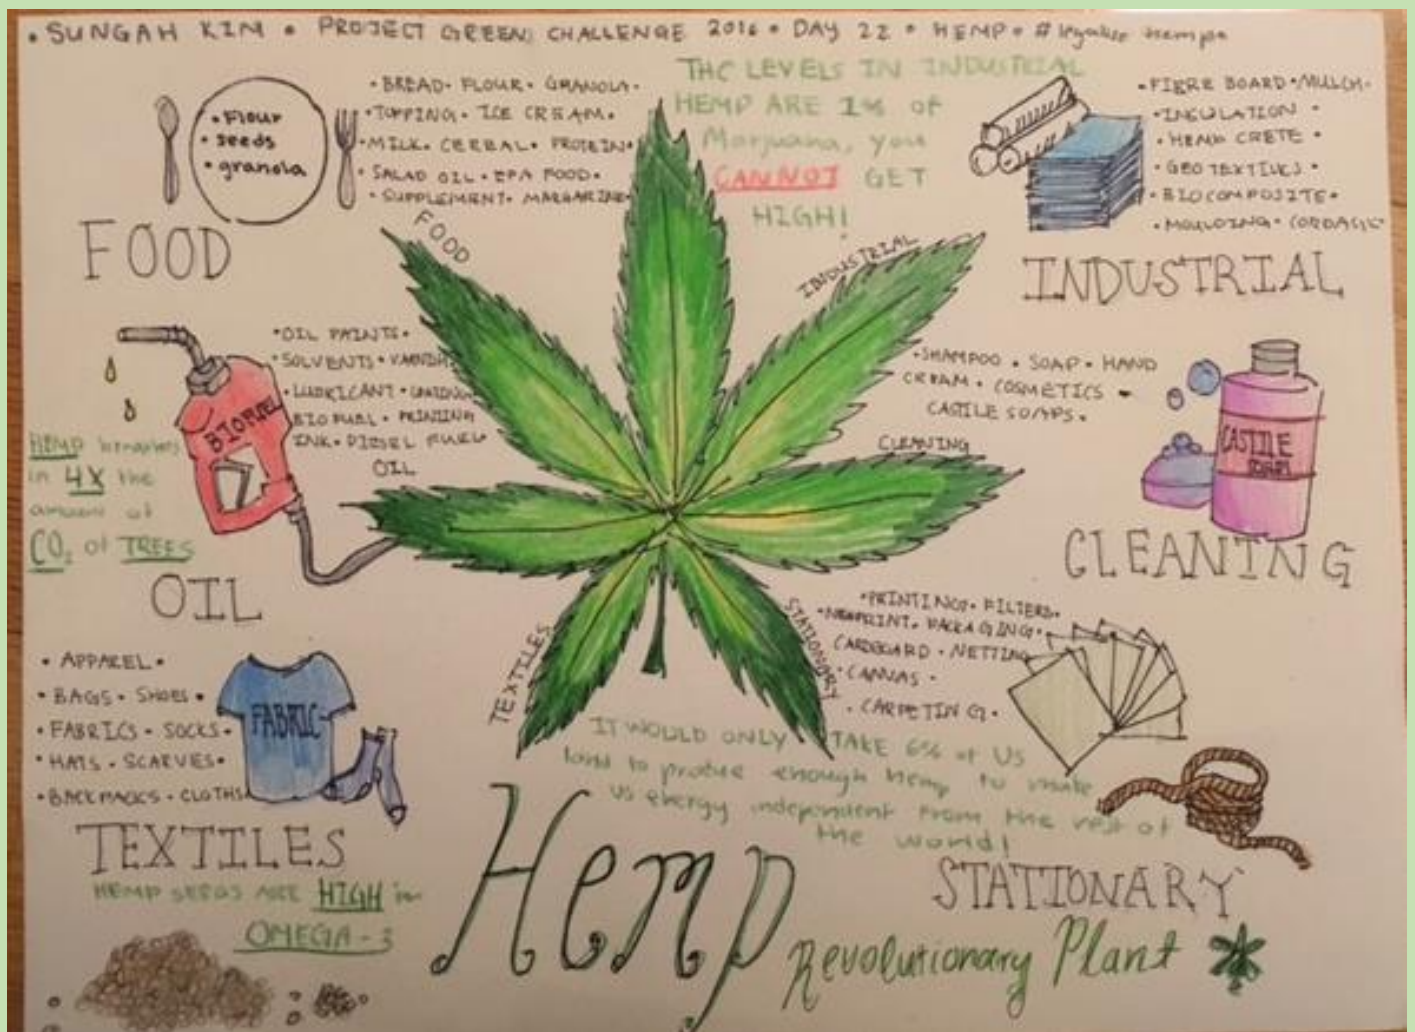 • SUNGAH KIM • PROJECT GREEN CHALLENGE 2016 • DAY 22 • HEMP • #legalise hemp •
• Flour
• seeds
• granola
• BREAD • FLOUR • GRANOLA •
• TOPPING • ICE CREAM •
• MILK • CEREAL • PROTEIN •
• SALAD OIL • EFA FOOD •
• SUPPLEMENT • MARGARINE •
FOOD
THC LEVELS IN INDUSTRIAL
HEMP ARE 1% of
Marijuana, you
CANNOT GET
HIGH!
• FIBRE BOARD • MULCH •
• INSULATION •
• HEMP CRETE •
• GEO TEXTILES •
• BIOCOMPOSITE •
• MOULDING • CORDAGE
INDUSTRIAL
FOOD
INDUSTRIAL
• OIL PAINTS •
• SOLVENTS • VARNISH
• LUBRICANT •
BIO FUEL • PRINTING
INK • DIESEL FUEL
OIL
BIOFUEL
HEMP
in 4X the
amount of
CO2 of TREES
OIL
• SHAMPOO • SOAP • HAND
CREAM • COSMETICS •
CASTILE SOAPS •
CLEANING
CASTILE
SOAPS
CLEANING
TEXTILES
STATIONARY
• APPAREL •
• BAGS • SHOES •
• FABRICS • SOCKS •
• HATS • SCARVES •
• BACKPACKS • CLOTHS
FABRIC
TEXTILES
• PRINTING • FILTERS •
• NEWPRINT • PACKAGING •
CARDBOARD • NETTING
• CANVAS •
• CARPETING •
STATIONARY
IT WOULD ONLY TAKE 6% of US
land to produce enough hemp to make
us energy independent from the rest of
the world!
HEMP SEEDS ARE HIGH in
OMEGA-3
Hemp
Revolutionary Plant